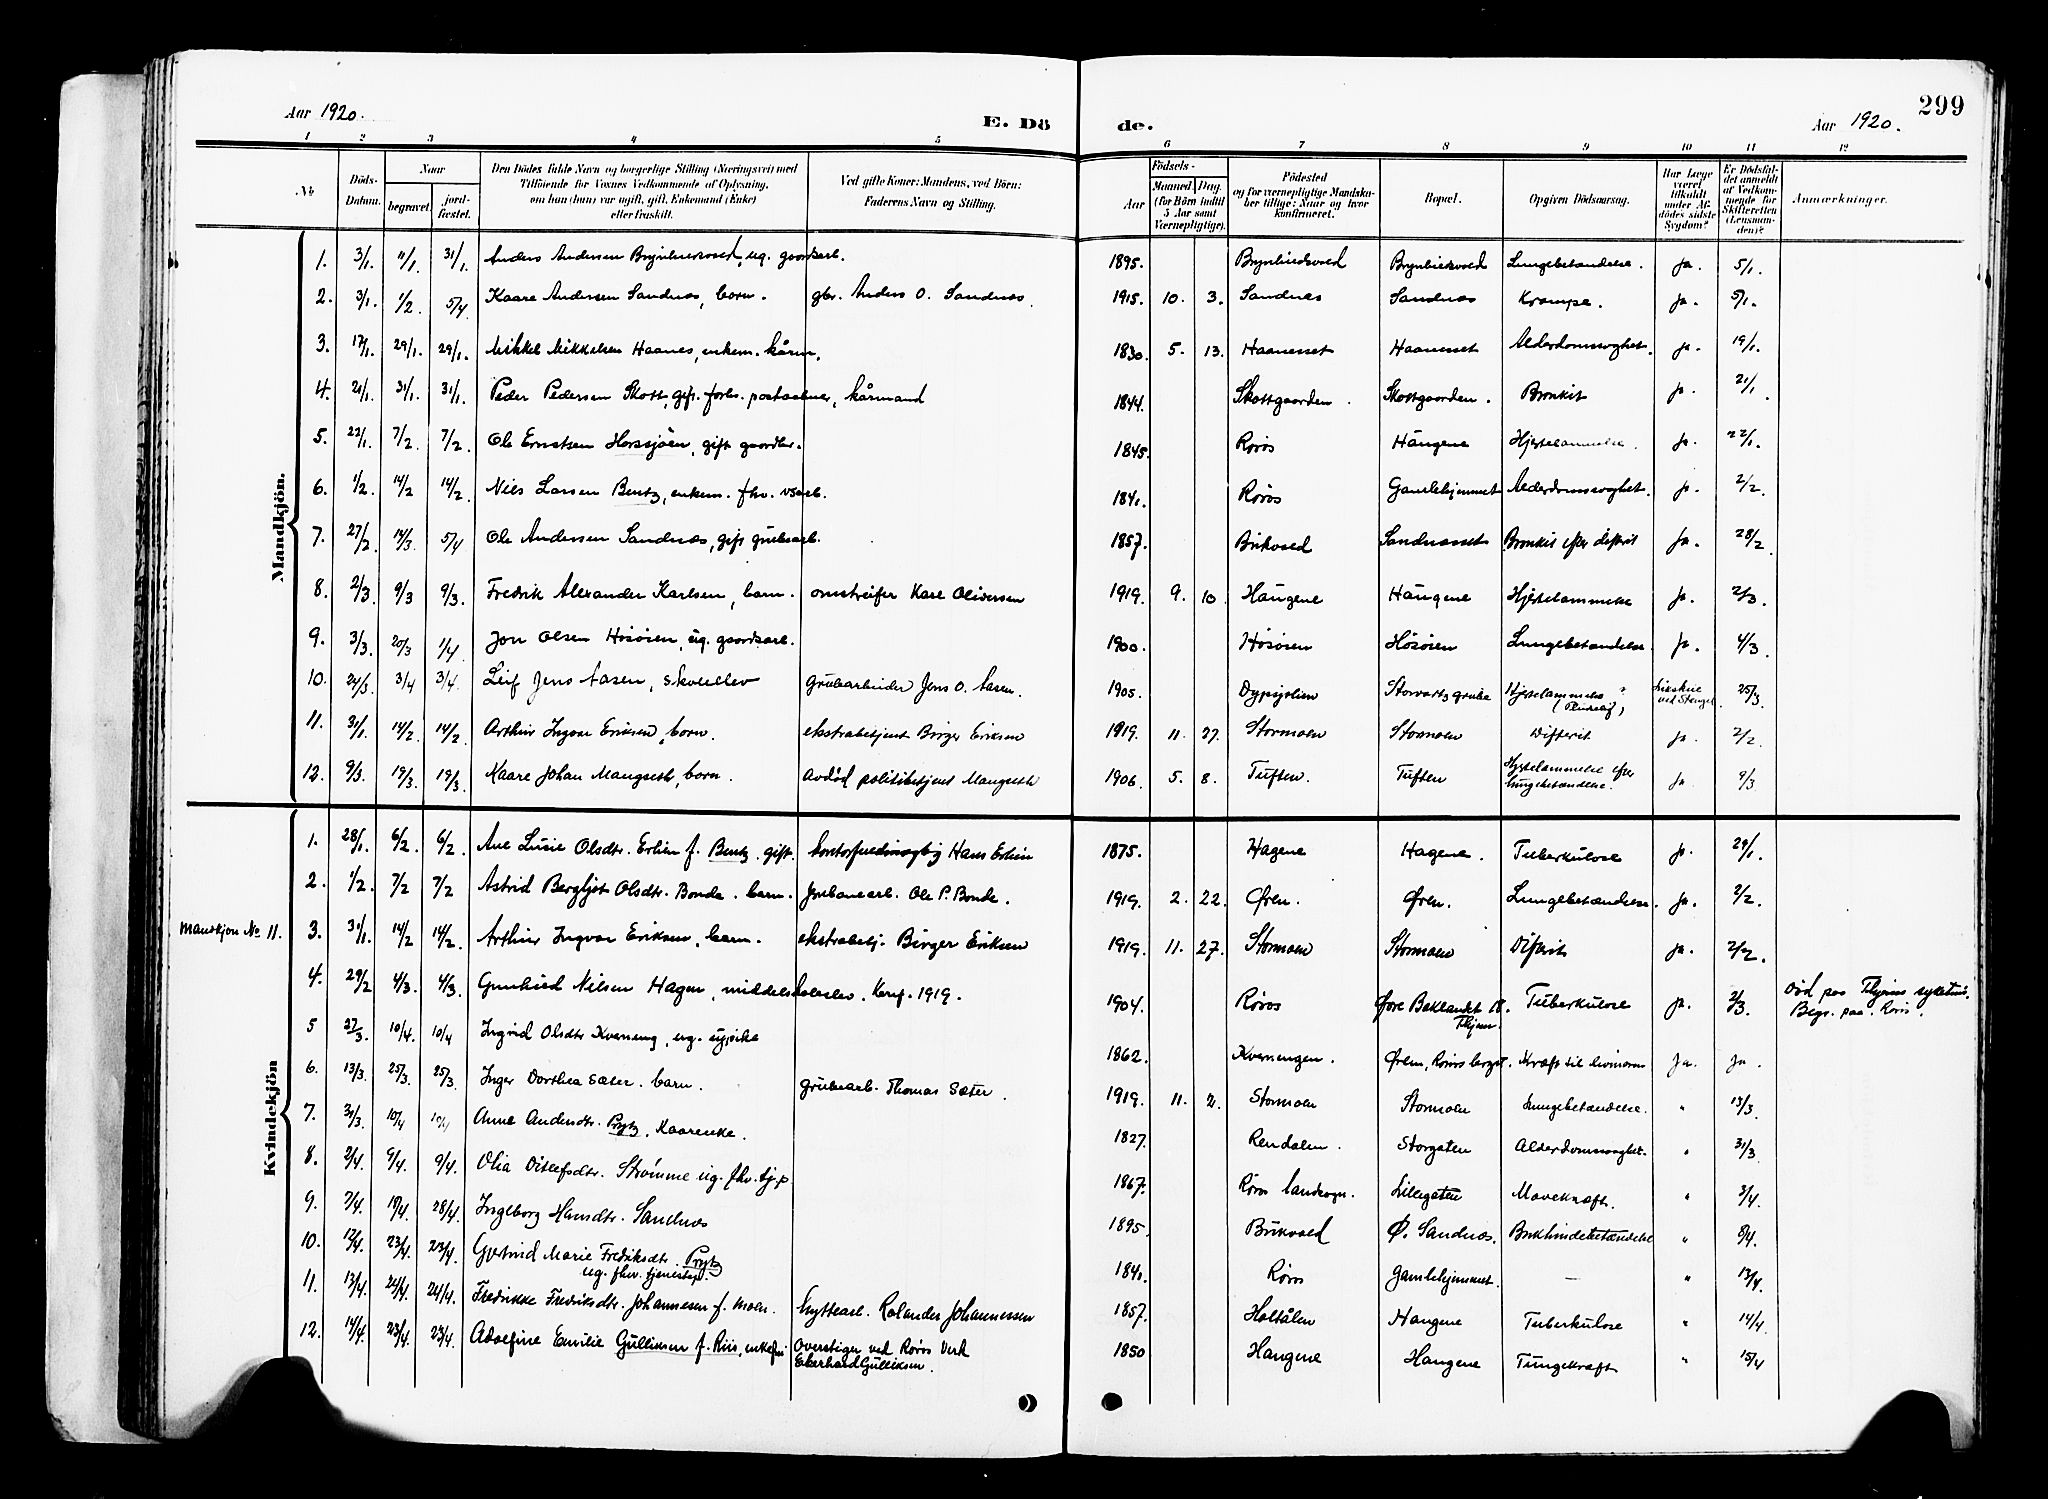 Aar 1920.
E. Dö
de.
Aar 1920.
299
1 2 3 4 5 6 7 8 9 10 11 12
No
Döds-Datum.
Naar
begravet.
jord-fæstet.
Den Dödes fulde Navn og borgerlige Stilling (Næringsvei) med
Tilföiende for Voxnes Vedkommende af Oplysning,
om han (hun) var ugift, gift, Enkemand (Enke)
eller fraskilt.
Ved gifte Koner: Mandens, ved Börn:
Faderens Navn og Stilling.
Födsels-
Aar
Maaned. Dag.
(for Börn indtil
5 Aar samt
Værnepligtige).
Födested
og for værnepligtige Mandska-
ber tillige: Naar og hvor
konfirmeret.
Bopæl.
Opgiven Dödsaarsag.
Har Læge
været
tilkaldt
under Af-
dödes sidste
Sygdom?
Er Dödsfal-
det anmeldt
af Vedkom-
mende for
Skifteretten
(Lensman-
den)?
Anmærkninger.
Mandkjön.
1. 3/1. 11/1. 31/1. Anders Andersen Brynhildsvold, ug. gaardsarb. 1895. Brynhildsvold Brynhildsvold Lungebetændelse. ja. 5/1.
2. 3/1. 1/2. 5/4. Kaare Andersen Sandnæs, barn. gbr. Anders O. Sandnæs. 1915. 10. 3. Sandnæs Sandnæs Krampe. ja. 5/1.
3. 17/1. 29/1. 29/1. Mikkel Mikkelsen Haanes, enkem. kårm. 1830. 5. 13. Haanesset Haanesset Alderdomssvaghet. ja. 19/1.
4. 21/1. 31/1. 31/1. Peder Pedersen Skott, gift. forh. postaabner, kårmand 1844. Skottgaarden. Skottgaarden. Bronkit ja. 21/1.
5. 22/1. 7/2. 7/2. Ole Erntsen Horssjøen, gift gaardbr. 1845. Røros Hångene Hjertelammelse. ja. 22/1.
6. 1/2. 14/2 14/2. Niels Larsen Bentz, enkem. fhv. vsarb. 1841. Røros Gamlehjemmet Alderdomssvaghet. ja. 2/2.
7. 27/2. 14/3 5/4 Ole Andersen Sandnæs, gift grubearb. 1857. Bukvold Sandnæsset Bronkit efter difterit ja. 28/2.
8. 2/3. 9/3 9/3. Fredrik Alexander Karlsen, barn. omstreifer Karl Oliversen 1919. 9. 10. Haugene Haugene Hjertelammelse ja. 2/3.
9. 3/3. 20/3 1/4 Jon Olsen Høsøien, ug. gaardsarb. 1900. Høsøien Høsøien Lungebetændelse ja. 4/3.
10. 24/3. 3/4 3/4. Leif Jens Aasen, skoleelev grubearbeider Jens O. Aasen. 1905. Storvartz grube Hjertelammelse ? 25/3.
11. 31/1. 14/2. 14/2. Arthur Ingvar Eriksen, barn. ekstrabetjent Birger Eriksen 1919. 11. 27. Stormoen Stormoen Difterit ja. 2/2.
12. 9/3. 19/3. 19/3. Kaare Johan Mangseth, barn. avdød politibetjent Mangseth 1906. 5. 8. Tuften. Tuften Hjertelammelse efter lungebetændelse. ja 9/3
Kvindekjön
1. 28/1. 6/2. 6/2. Ane Lusie Olsdtr. Erlien f. Bentz. gift. Hans Erlien 1875. Hagene Hagene. Tuberkulose ja. 29/1.
2. 1/2. 7/2 7/2 Astrid Bergljot Olsdtr. Bonde. barn. jernbanearb. Ole P. Bonde. 1919. 2. 22. Øren. Øren. Lungebetændelse. ja. 2/2.
Manskjøn No 11. 3. 31/1. 14/2 14/2. Arthur Ingvar Eriksen, barn. ekstrabetj. Birger Eriksen 1919. 11. 27. Stormoen Stormoen Difterit ja. 2/2.
4. 29/2 4/3. 4/3. Gunhild Nilsen Hagen, middelskoleelev. Konf. 1919. 1904. Røros Øvre Baklandet 18. Thjem. Tuberkulose ja. 2/3. Død paa Thjems sykehus. Begr. paa Røros.
5 27/3. 10/4. 10/4 Ingrid Olsdtr Kverneng, ug. sypike 1862. Kverningen. Øren, Røros bergst. Kræft til livmoren Ja. Ja.
6. 13/3. 25/3. 25/3. Inger Dorthea Sæter. barn. grubearb. Thomas Sæter. 1919. 11. 2. Stormoen Stormoen Lungebetændelse. " 13/3.
7. 31/3. 10/4 10/4 Anne Andersdtr. Prytz, Kaarenke. 1827. Rendalen. Storgaten Alderdomssvaghet. " 31/3.
8. 2/4. 9/4. 9/4. Olia Ditlefsdtr. Strømme ug. fhv. tj.p. 1867. Røros landsogn. Lillegaten Mavekræft. " 3/4.
9. 7/4. 18/4. 28/4. Ingeborg Hansdtr. Sandnæs 1895. Bukvold Ø. Sandnæs. Bukhindebetændelse " 8/4.
10. 12/4. 23/4. 23/4. Gjertrud Marie Fredriksdtr. Prytz ug. fhv. tjenestep. 1841. Røros Gamlehjemmet. — " 13/4.
11. 13/4. 24/4. 24/4. Fredrikke Fredriksdtr. Johannesen f. Moen. hyttearb. Rolander Johannessen 1857. Holtålen Haugene Tuberkulose " 14/4.
12. 14/4. 23/4. 23/4. Adolfine Emilie Gulliksen f. Riis, enkefru Overstiger ved Røros Verk Eberhard Gulliksen. 1850 Haugene Haugene Tungekræft " 15/4